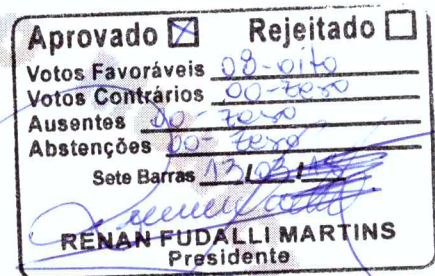 Aprovado ☒ Rejeitado ☐
Votos Favoráveis 08-oito
Votos Contrários 00-zero
Ausentes 00-zero
Abstenções 00-zero
Sete Barras 13/03/
RENAN FUDALLI MARTINS
Presidente